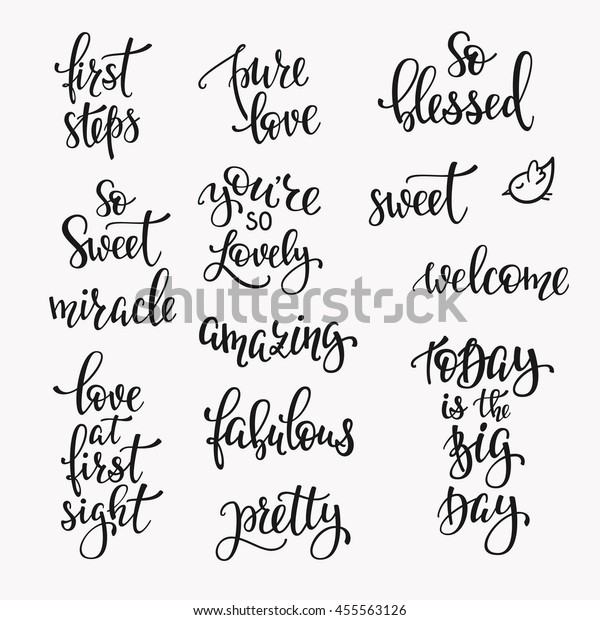 first
steps
pure
love
so
blessed
so
sweet
miracle
you're
so
lovely
sweet
welcome
amazing
love
at
first
sight
fabulous
pretty
TODAY
is the
Big
Day
shutterstock.com · 455563126